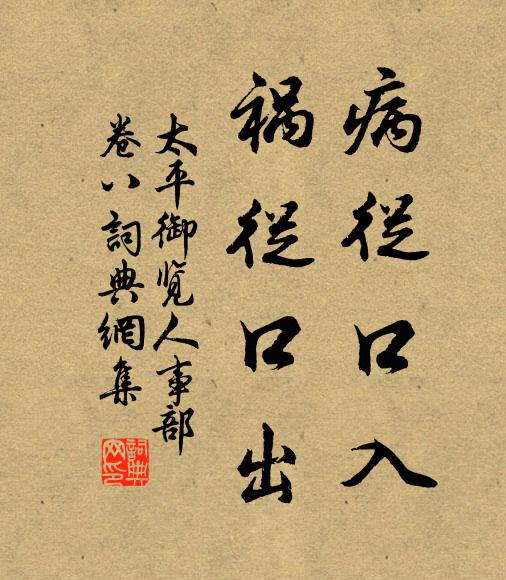 病從口入
禍從口出
太平御覧人事部
卷八詞典網集
詞典
网印